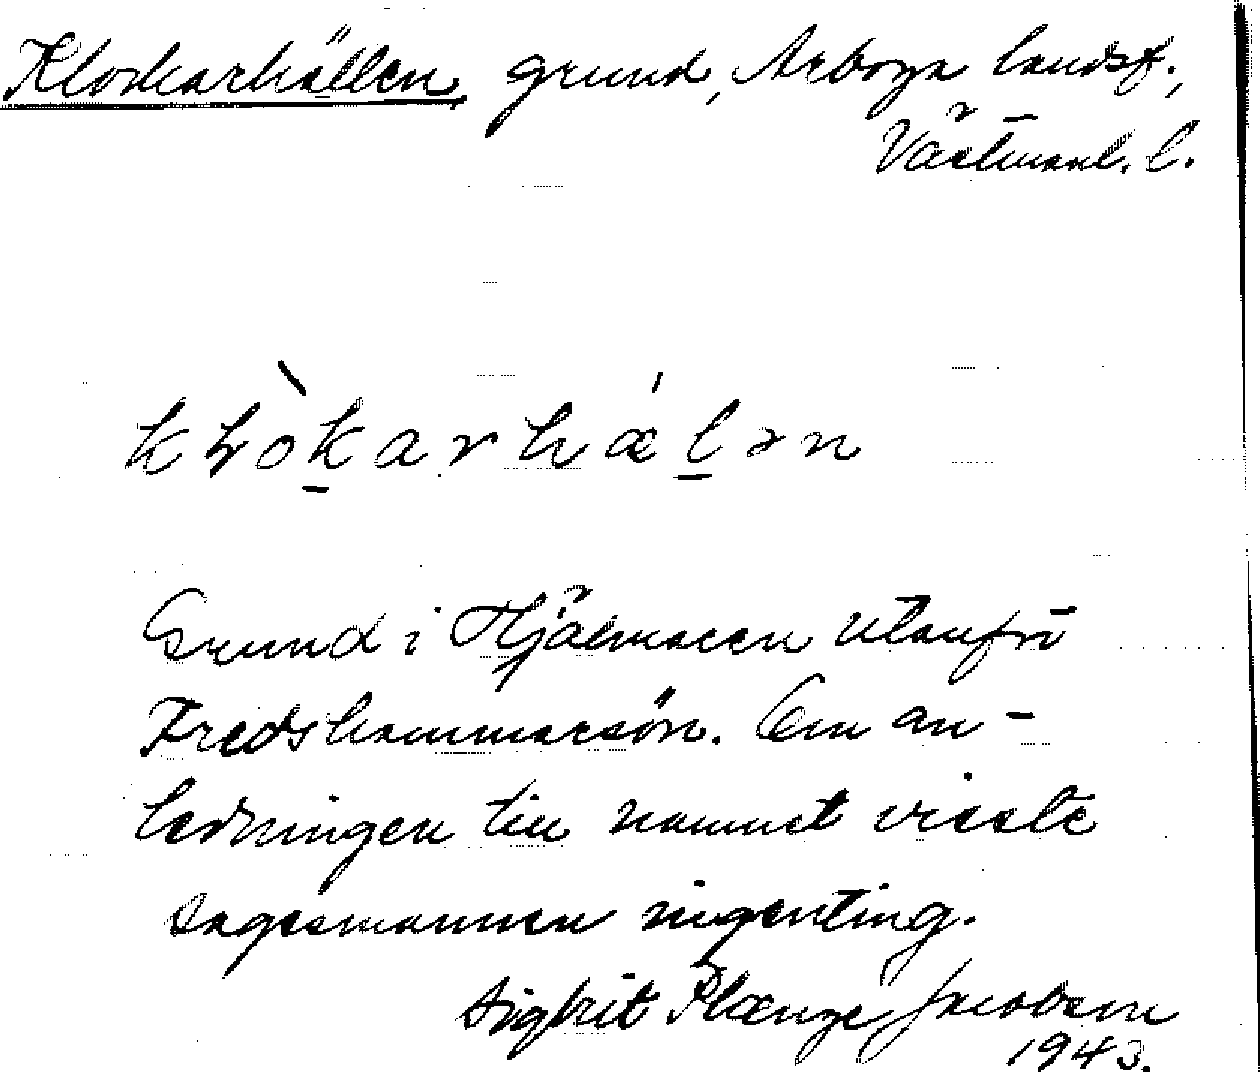 Klockarhällen, grund, Arboga landsf.,
Västmanl. l.
kłòkarhǽlən
Grund i Hjälmaren utanför
Fredshammarsön. Om an-
ledningen till namnet visste
sagesmannen ingenting.
Sigbrit Plænge Jacobson
1943.